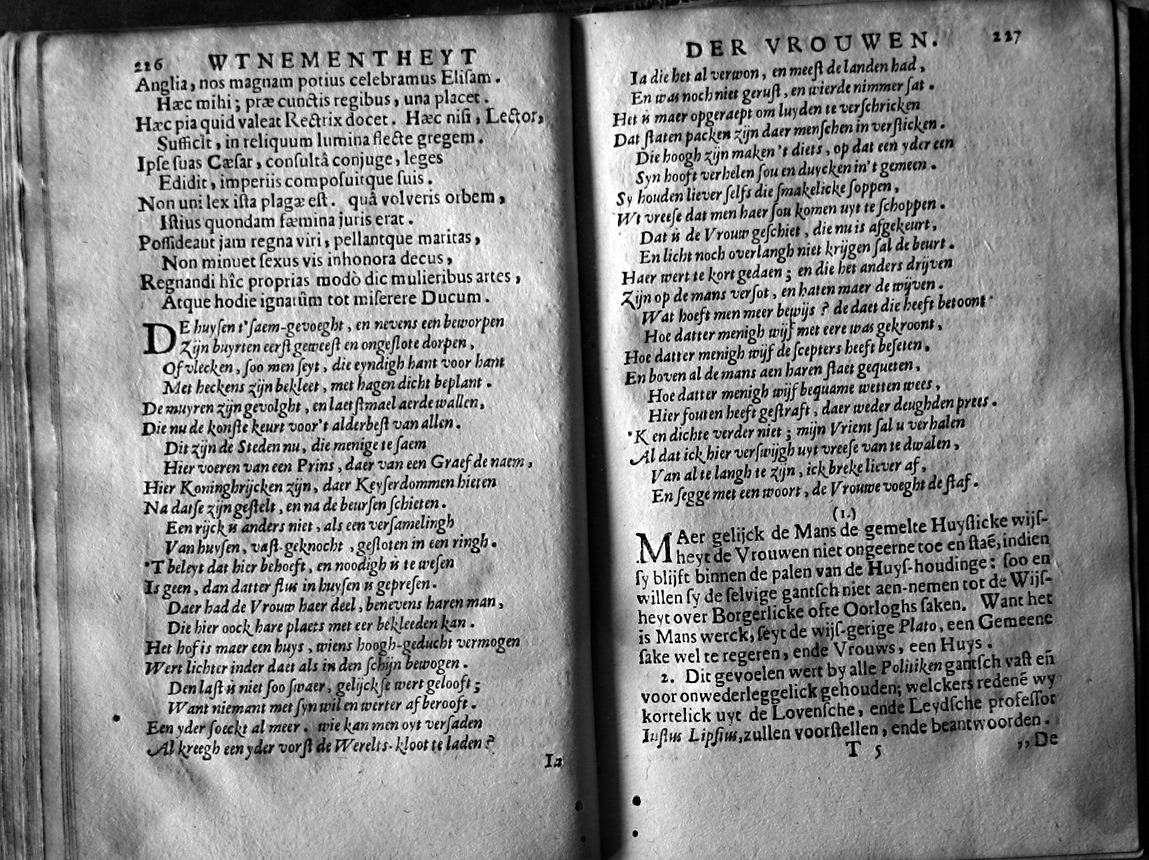 226 WTNEMENTHEYT
Anglia, nos magnam potius celebramus Elisam.
Hæc mihi; præ cunctis regibus, una placet.
Hæc pia quid valeat Rectrix docet. Hæc nisi, Lector,
Sufficit, in reliquum lumina flecte gregem.
Ipse suas Cæsar, consultâ conjuge, leges
Edidit, imperiis composuitque suis.
Non uni lex ista plagæ est. quâ volveris orbem,
Istius quondam fæmina juris erat.
Possideant jam regna viri, pellantque maritas,
Non minuet sexus vis inhonora decus,
Regnandi hîc proprias modò dic mulieribus artes,
Atque hodie ignarûm tot miserere Ducum.
DE huysen t'saem-gevoeght, en nevens een beworpen
Zijn buyrten eerst geweest en ongeslote dorpen,
Of vlecken, soo men seyt, die eyndigh hant voor hant
Met heckens zijn bekleet, met hagen dicht beplant.
De muyren zijn gevolght, en laetstmael aerde wallen,
Die nu de konste keurt voor't alderbest van allen.
Dit zijn de Steden nu, die menige te saem
Hier voeren van een Prins, daer van een Graef de naem,
Hier Koninghrijcken zijn, daer Keyserdommen hieten
Na datse zijn gestelt, en na de beursen schieten.
Een rijck is anders niet, als een versamelingh
Van huysen, vast-geknocht, gesloten in een ringh.
'T beleyt dat hier behoeft, en noodigh is te wesen
Is geen, dan datter flus in huysen is gepresen.
Daer had de Vrouw haer deel, benevens haren man,
Die hier oock hare plaets met eer bekleeden kan.
Het hof is maer een huys, wiens hoogh-geducht vermogen
Wert lichter inder daet als in den schijn bewogen.
Den last is niet soo swaer, gelijckse wert gelooft;
Want niemant met syn wil en werter af berooft.
Een yder soeckt al meer. wie kan men oyt versaden
Al kreegh een yder vorst de Werelts-kloot te laden?
Ia
DER VROUWEN. 227
Ia die het al verwon, en meest de landen had,
En was noch niet gerust, en wierde nimmer sat.
Het is maer opgeraept om luyden te verschricken
Dat staten packen zijn daer menschen in versticken.
Die hoogh zijn maken't diets, op dat een yder een
Syn hooft verhelen sou en duycken in't gemeen.
Sy houden liever selfs die smakelicke soppen,
Wt vreese dat men haer sou komen uyt te schoppen.
Dat is de Vrouw geschiet, die nu is afgekeurt,
En licht noch overlangh niet krijgen sal de beurt.
Haer wert te kort gedaen; en die het anders drijven
Zijn op de mans versot, en haten maer de wijven.
Wat hoeft men meer bewijs? de daet die heeft betoont
Hoe datter menigh wijf met eere was gekroont,
Hoe datter menigh wijf de scepters heeft beseten,
En boven al de mans aen haren staet gequeten,
Hoe datter menigh wijf bequame wetten wees,
Hier fouten heeft gestraft, daer weder deughden prees.
'K en dichte verder niet; mijn Vrient sal u verhalen
Al dat ick hier verswijgh uyt vreese van te dwalen,
Van al te langh te zijn, ick breke liever af,
En segge met een woort, de Vrouwe voeght de staf.
(1.)
MAer gelijck de Mans de gemelte Huyslicke wijs-
heyt de Vrouwen niet ongeerne toe en staē, indien
sy blijft binnen de palen van de Huys-houdinge: soo en
willen sy de selvige gantsch niet aen-nemen tot de Wijs-
heyt over Borgerlicke ofte Oorloghs saken. Want het
is Mans werck, seyt de wijs-gerige Plato, een Gemeene
sake wel te regeren, ende Vrouws, een Huys.
2. Dit gevoelen wert by alle Politiken gantsch vast eñ
voor onwederleggelick gehouden; welckers redenē wy
kortelick uyt de Lovensche, ende Leydsche professor
Iustus Lipsius, zullen voorstellen, ende beantwoorden.
T 5 ,, De